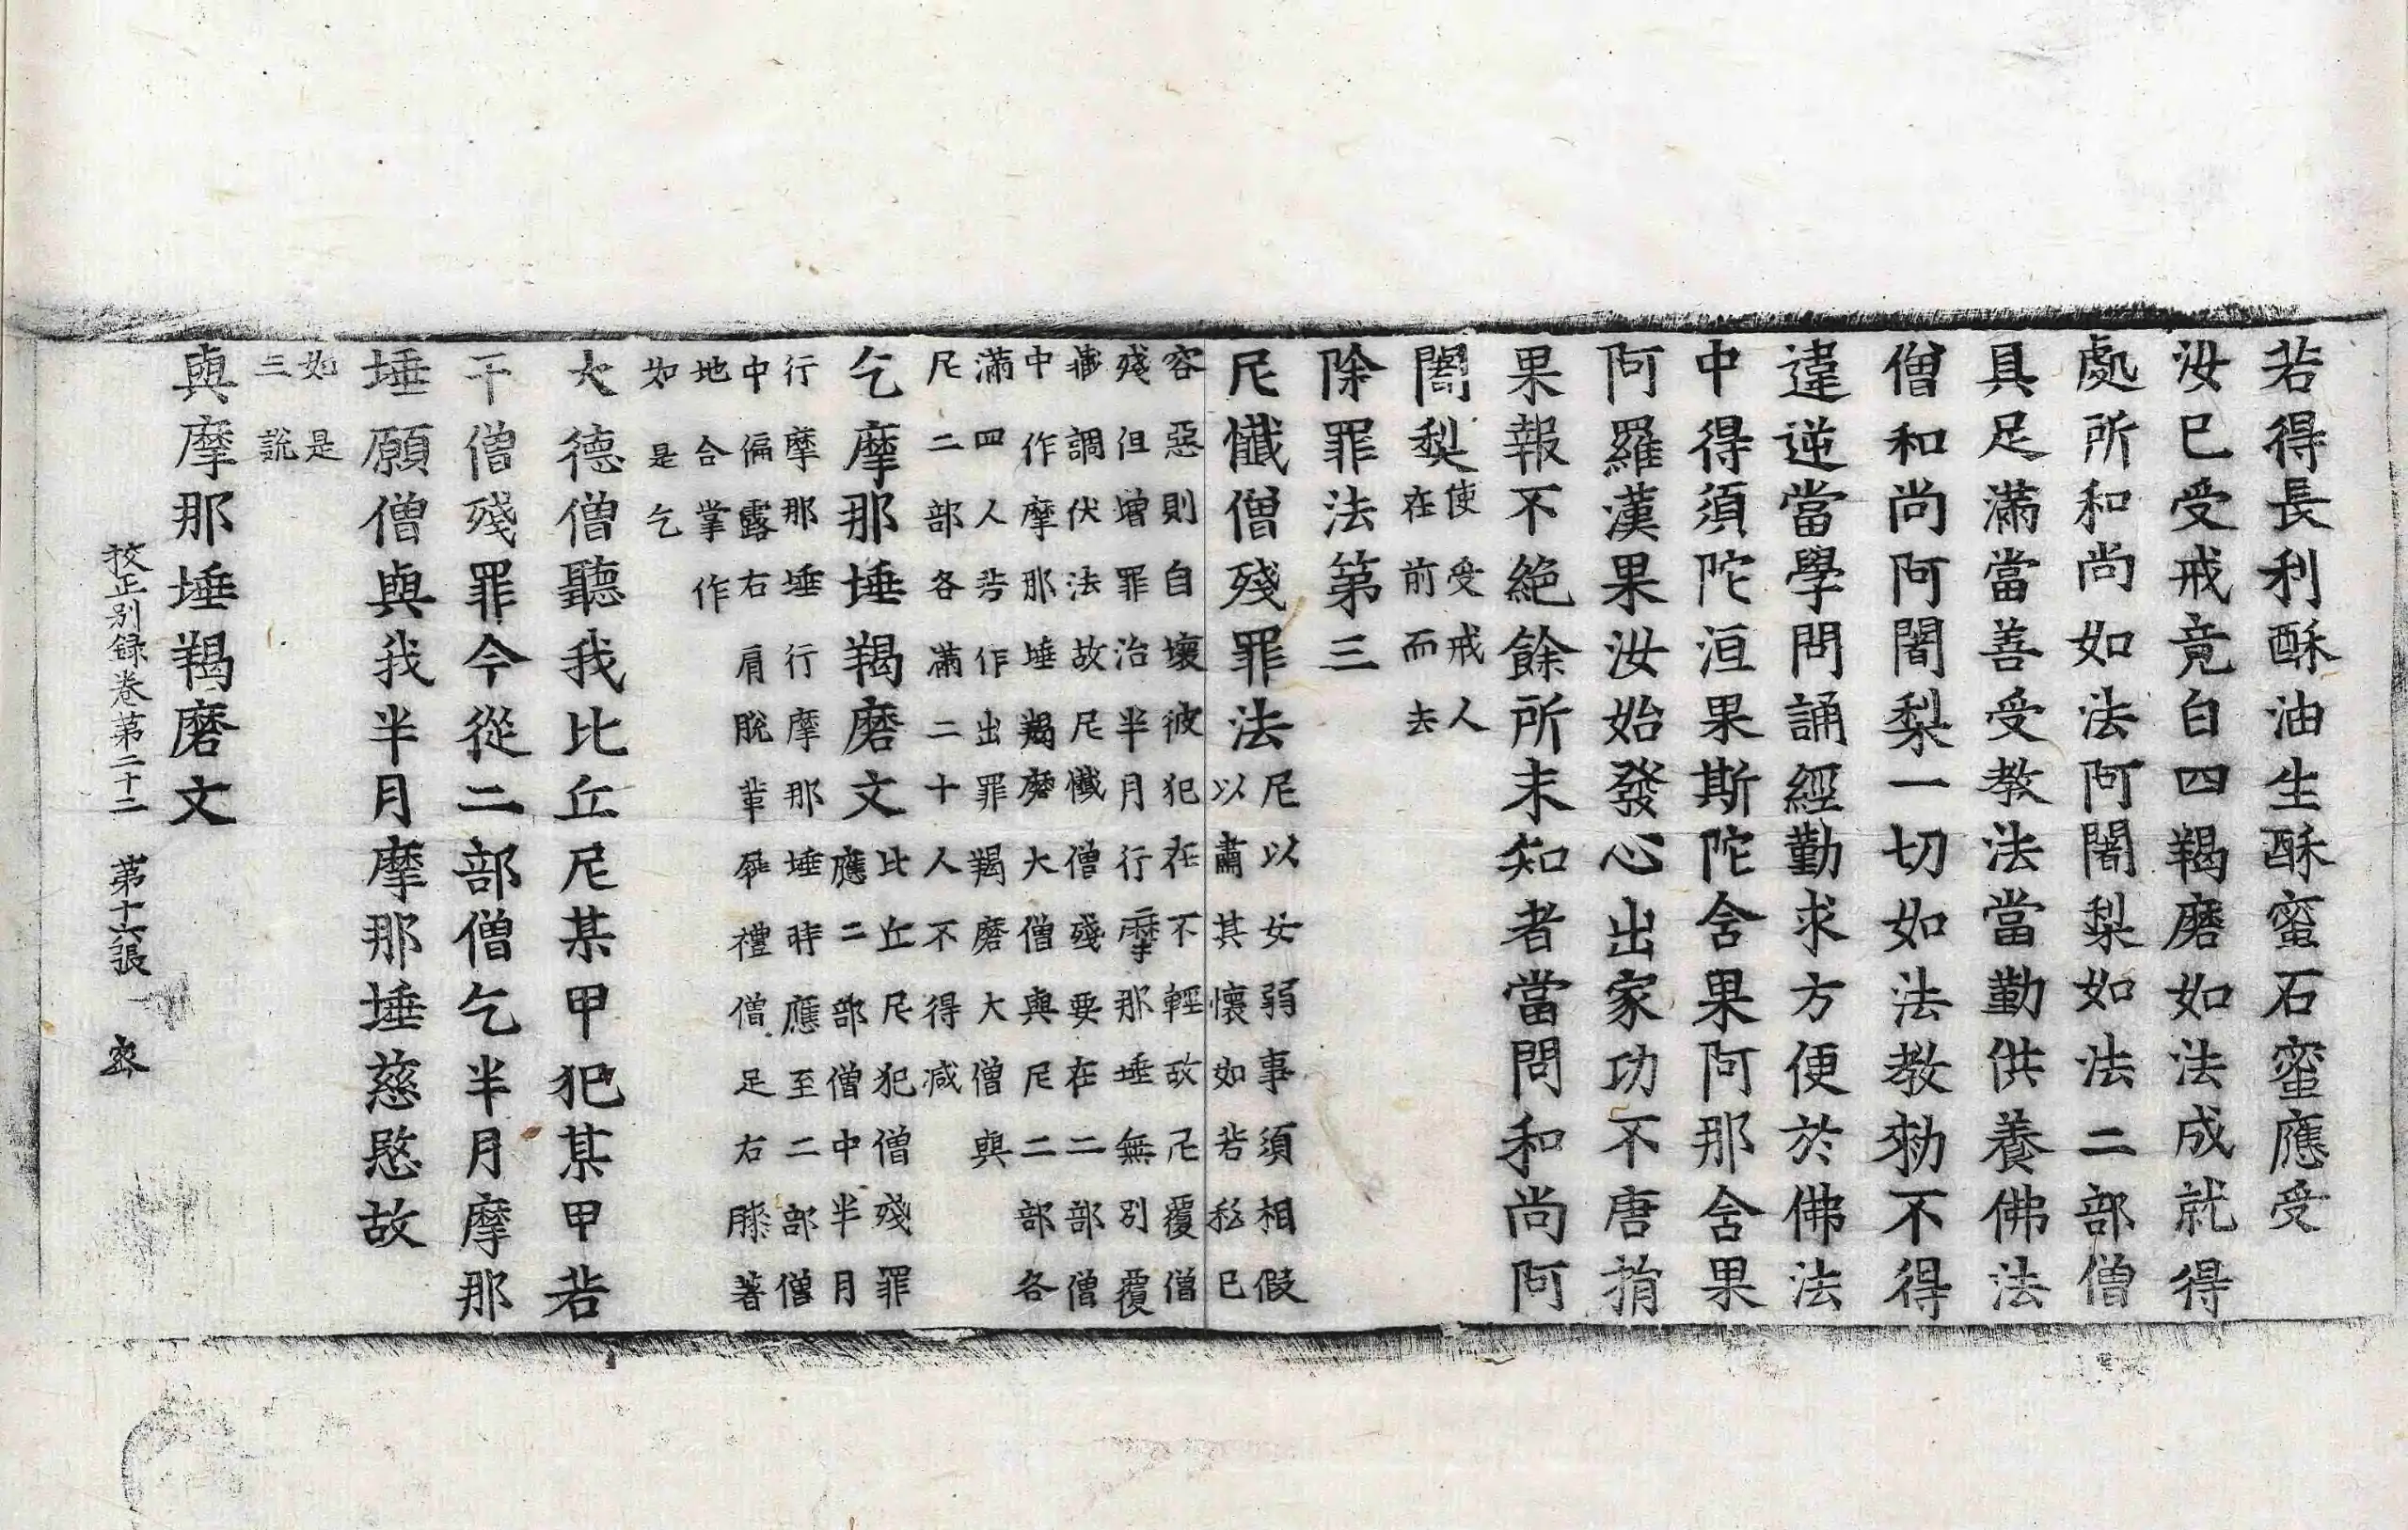 若得長利酥油生酥蜜石蜜應受
汝已受戒竟白四羯磨如法成就得
處所和尚如法阿闍梨如法二部僧
具足滿當善受教法當勤供養佛法
僧和尚阿闍梨一切如法教勑不得
違逆當學問誦經勤求方便於佛法
中得須陀洹果斯陀含果阿那含果
阿羅漢果汝始發心出家功不唐捐
果報不絕餘所未知者當問和尚阿
闍梨使受戒人
在前而去
除罪法第三
尼懺僧殘罪法尼以女弱事須相假
以肅其懷如若私已
容惡則自壞彼犯在不輕故尼覆僧
殘但增罪治半月行摩那埵無別覆
藏調伏法故尼懺僧殘要在二部僧
中作摩那埵羯磨大僧與尼二部各
滿四人若作出罪羯磨大僧與
尼二部各滿二十人不得減
乞摩那埵羯磨文比丘尼犯僧殘罪
應二部僧中半月
行摩那埵行摩那埵時應至二部僧
中偏露右肩脫革屣禮僧足右膝著
地合掌作
如是乞
大德僧聽我比丘尼某甲犯某甲若
干僧殘罪今從二部僧乞半月摩那
埵願僧與我半月摩那埵慈愍故
如是
三說
與摩那埵羯磨文
挍正別録卷第二十二 第十六張